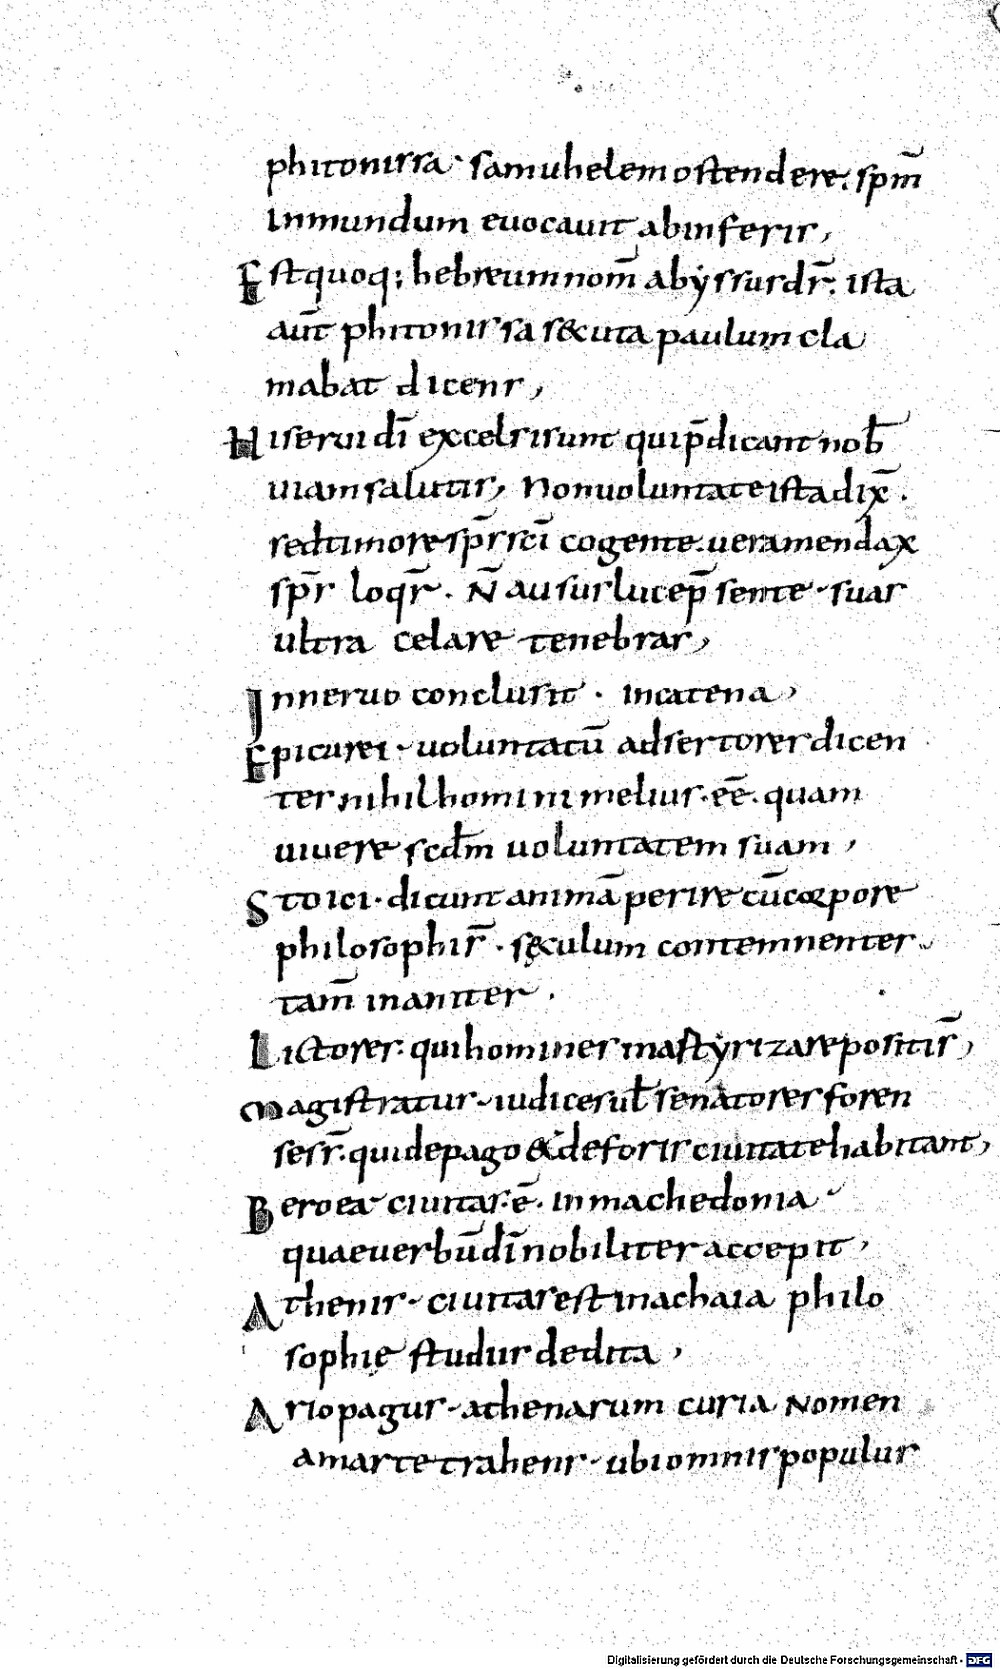 phitonissa· samuhelem ostendere. sp̄m
inmundum euocauit ab inferis,
Est quoq; hebreum nom̄ abyssus dr̄. ista
aūt phitonissa secuta paulum cla
mabat dicens,
Hi serui dī excelsi sunt qui p̄dicant nob̄
uiam salutis, Non uoluntate ista dix̄.
sed timore sp̄s sc̄i cogente. uera mendax
sp̄s loqr̄. N̄ ausus luce p̄sente· suas
ultra celare tenebras,
In neruo conclusit· in catena,
Epicurei· uoluntatū adsertores dicen
tes nihil homini melius· eē. quam
uiuere scd̄m uoluntatem suam,
Stoici· dicunt animā perire cū corpore
philosophis̄· sęculum contemnentes.
tam̄ inaniter.
Lictores· qui homines mastyrizare positis̄,
Magistratus· iudices ul̄ senatores foren
ses s̄. qui de pago & de foris ciuitate habitant,
Beroea· ciuitas· ē. in machedonia
quae uerbū dī nobiliter accepit,
Athenis· ciuitas est in achaia philo
sophię studiis dedita,
Ariopagus· athenarum curia Nomen
a marte trahens· ubi omnis populus
Digitalisierung gefördert durch die Deutsche Forschungsgemeinschaft - DFG